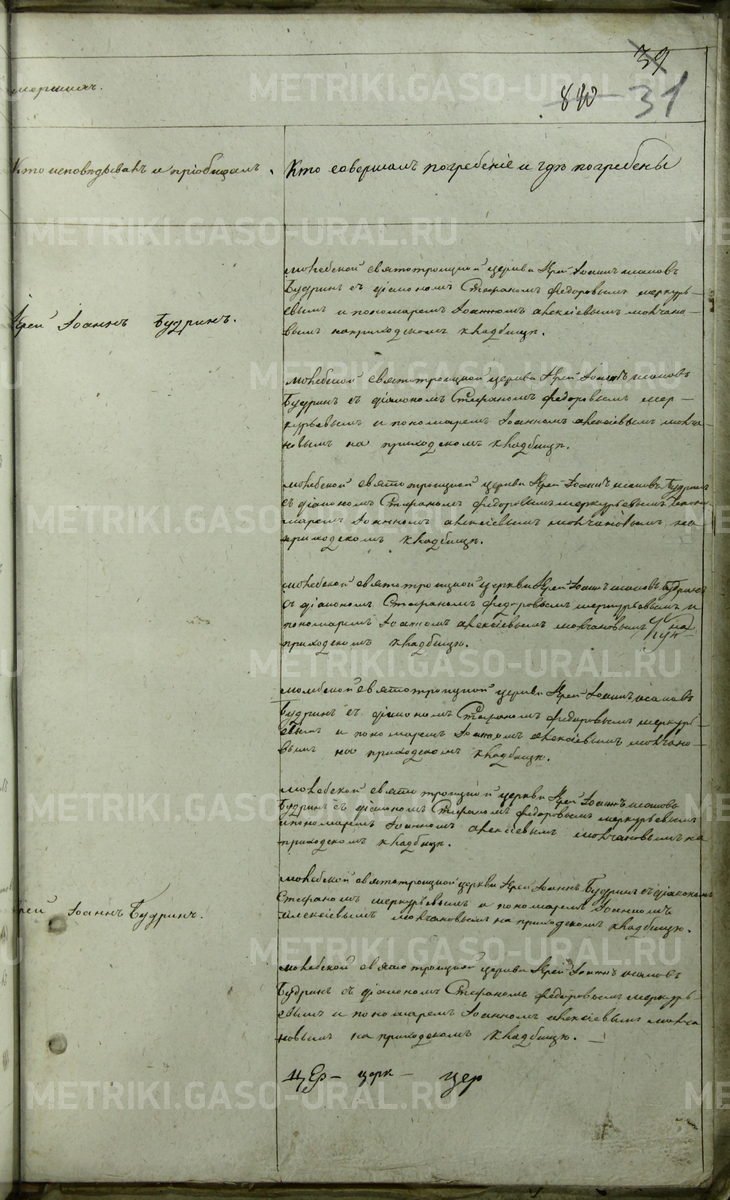 39
840 31
мершихъ.
Кто исповѣдывалъ и пріобщалъ.
Кто совершалъ погребеніе и гдѣ погребены
Іерей Іоаннъ Будринъ.
молебской святотроицкой церкви Іерей Іоаннъ исаковъ
Будринъ съ діакономъ Стефаномъ федоровымъ меркурь-
евымъ и пономаремъ Іоанномъ алексіевымъ молчано-
вымъ на приходскомъ кладбищѣ.
молебской святотроицкой церкви Іерей Іоаннъ исаковъ
Будринъ съ діакономъ Стефаномъ федоровымъ мер-
курьевымъ и пономаремъ Іоанномъ алексіевымъ молча-
новымъ на приходскомъ кладбищѣ.
молебской святотроицкой церкви Іерей Іоаннъ исаковъ Будринъ
съ діакономъ Стефаномъ федоровымъ меркурьевымъ и поно-
маремъ Іоанномъ алексіевымъ молчановымъ на
приходскомъ кладбищѣ.
молебской святотроицкой церкви Іерей Іоаннъ исаковъ Будринъ
съ діакономъ Стефаномъ федоровымъ меркурьевымъ и
пономаремъ Іоанномъ алексіевымъ молчановымъ на
приходскомъ кладбищѣ.
молебской святотроицкой церкви Іерей Іоаннъ исаковъ
Будринъ съ діакономъ Стефаномъ федоровымъ меркурь-
евымъ и пономаремъ Іоанномъ алексіевымъ молчано-
вымъ на приходскомъ кладбищѣ.
молебской святотроицкой церкви Іерей Іоаннъ исаковъ
Будринъ съ діакономъ Стефаномъ федоровымъ меркурьевымъ
и пономаремъ Іоанномъ алексіевымъ молчановымъ на
приходскомъ кладбищѣ.
рей Іоаннъ Будринъ.
молебской святотроицкой церкви Іерей Іоаннъ Будринъ съ діакономъ
Стефаномъ меркурьевымъ и пономаремъ Іоанномъ
алексіевымъ молчановымъ на приходскомъ кладбищѣ.
молебской святотроицкой церкви Іерей Іоаннъ исаковъ
Будринъ съ діакономъ Стефаномъ федоровымъ меркурь-
евымъ и пономаремъ Іоанномъ алексіевымъ молча-
новымъ на приходскомъ кладбищѣ.
церк цер
METRIKI.GASO-URAL.RU